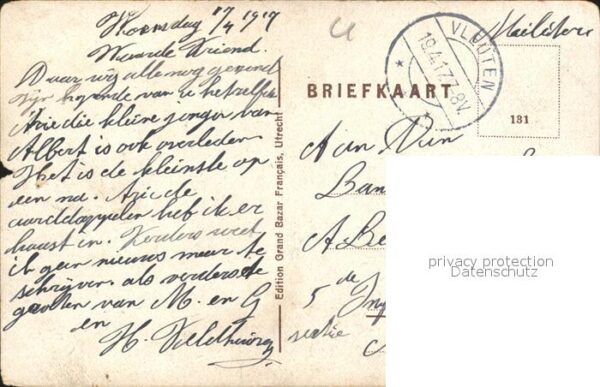 Woensdag 17/4 1917
Waarde Vriend.
Daar wij alle nog gezond
zijn hopende van u het zelfde
Arie die kleine jongen van
Albert is ook overleden
Het is de kleinste op
een na. Arie de
aarddappelen heb ik er
haast in. Verders weet
ik geen nieuws meer te
schrijven. als verders de
groeten van M. en G
en
H. Veldhuizen
Edition Grand Bazar Français, Utrecht
Militair
VLEUTEN
19.4.17.7-8V.
BRIEFKAART
181
Aan Den
A
5de
sectie
privacy protection
Datenschutz